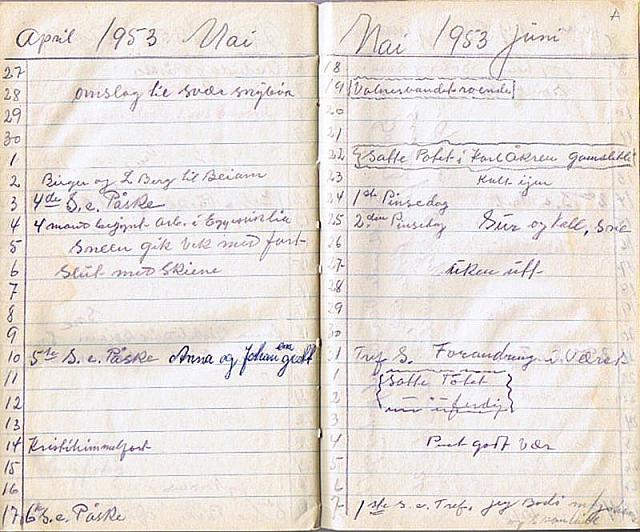 April 1953 Mai
27
28 omslag til svær snybøn
29
30
1
2 Birger og L Berg til Beiarn
3 4de S. e. Påske
4 4 mand begynt arb. i
5 Sneen gik vek med fart
6 Slut med Skiene
7
8
9
10 5te S. e. Påske Anna og Johan gott
11
12
13
14 Kristihimmelfart
15
16
17 6te S. e. Påske
Mai 1953 Juni
A
18
19
20
21
22 Satte Potet i Åkren
23 Kalt igjen
24 1ste Pinsedag
25 2den Pinsedag Sur og kall, Sne
26
27 uken utt
28
29
30
31 Tref S. Forandring i Været
1 Satte Potet
2
3
4 Pent godt Vær
5
6
7 1ste S. e. Tref. jeg Bodø